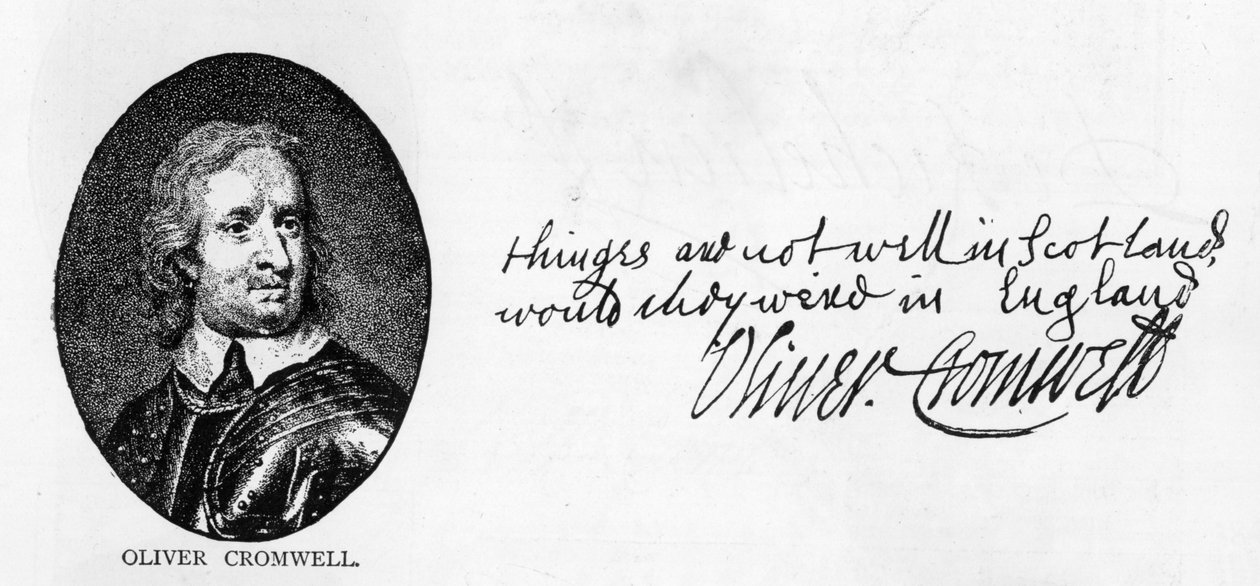 thinges are not well in Scotland,
would they were in England
Oliver Cromwell
OLIVER CROMWELL.